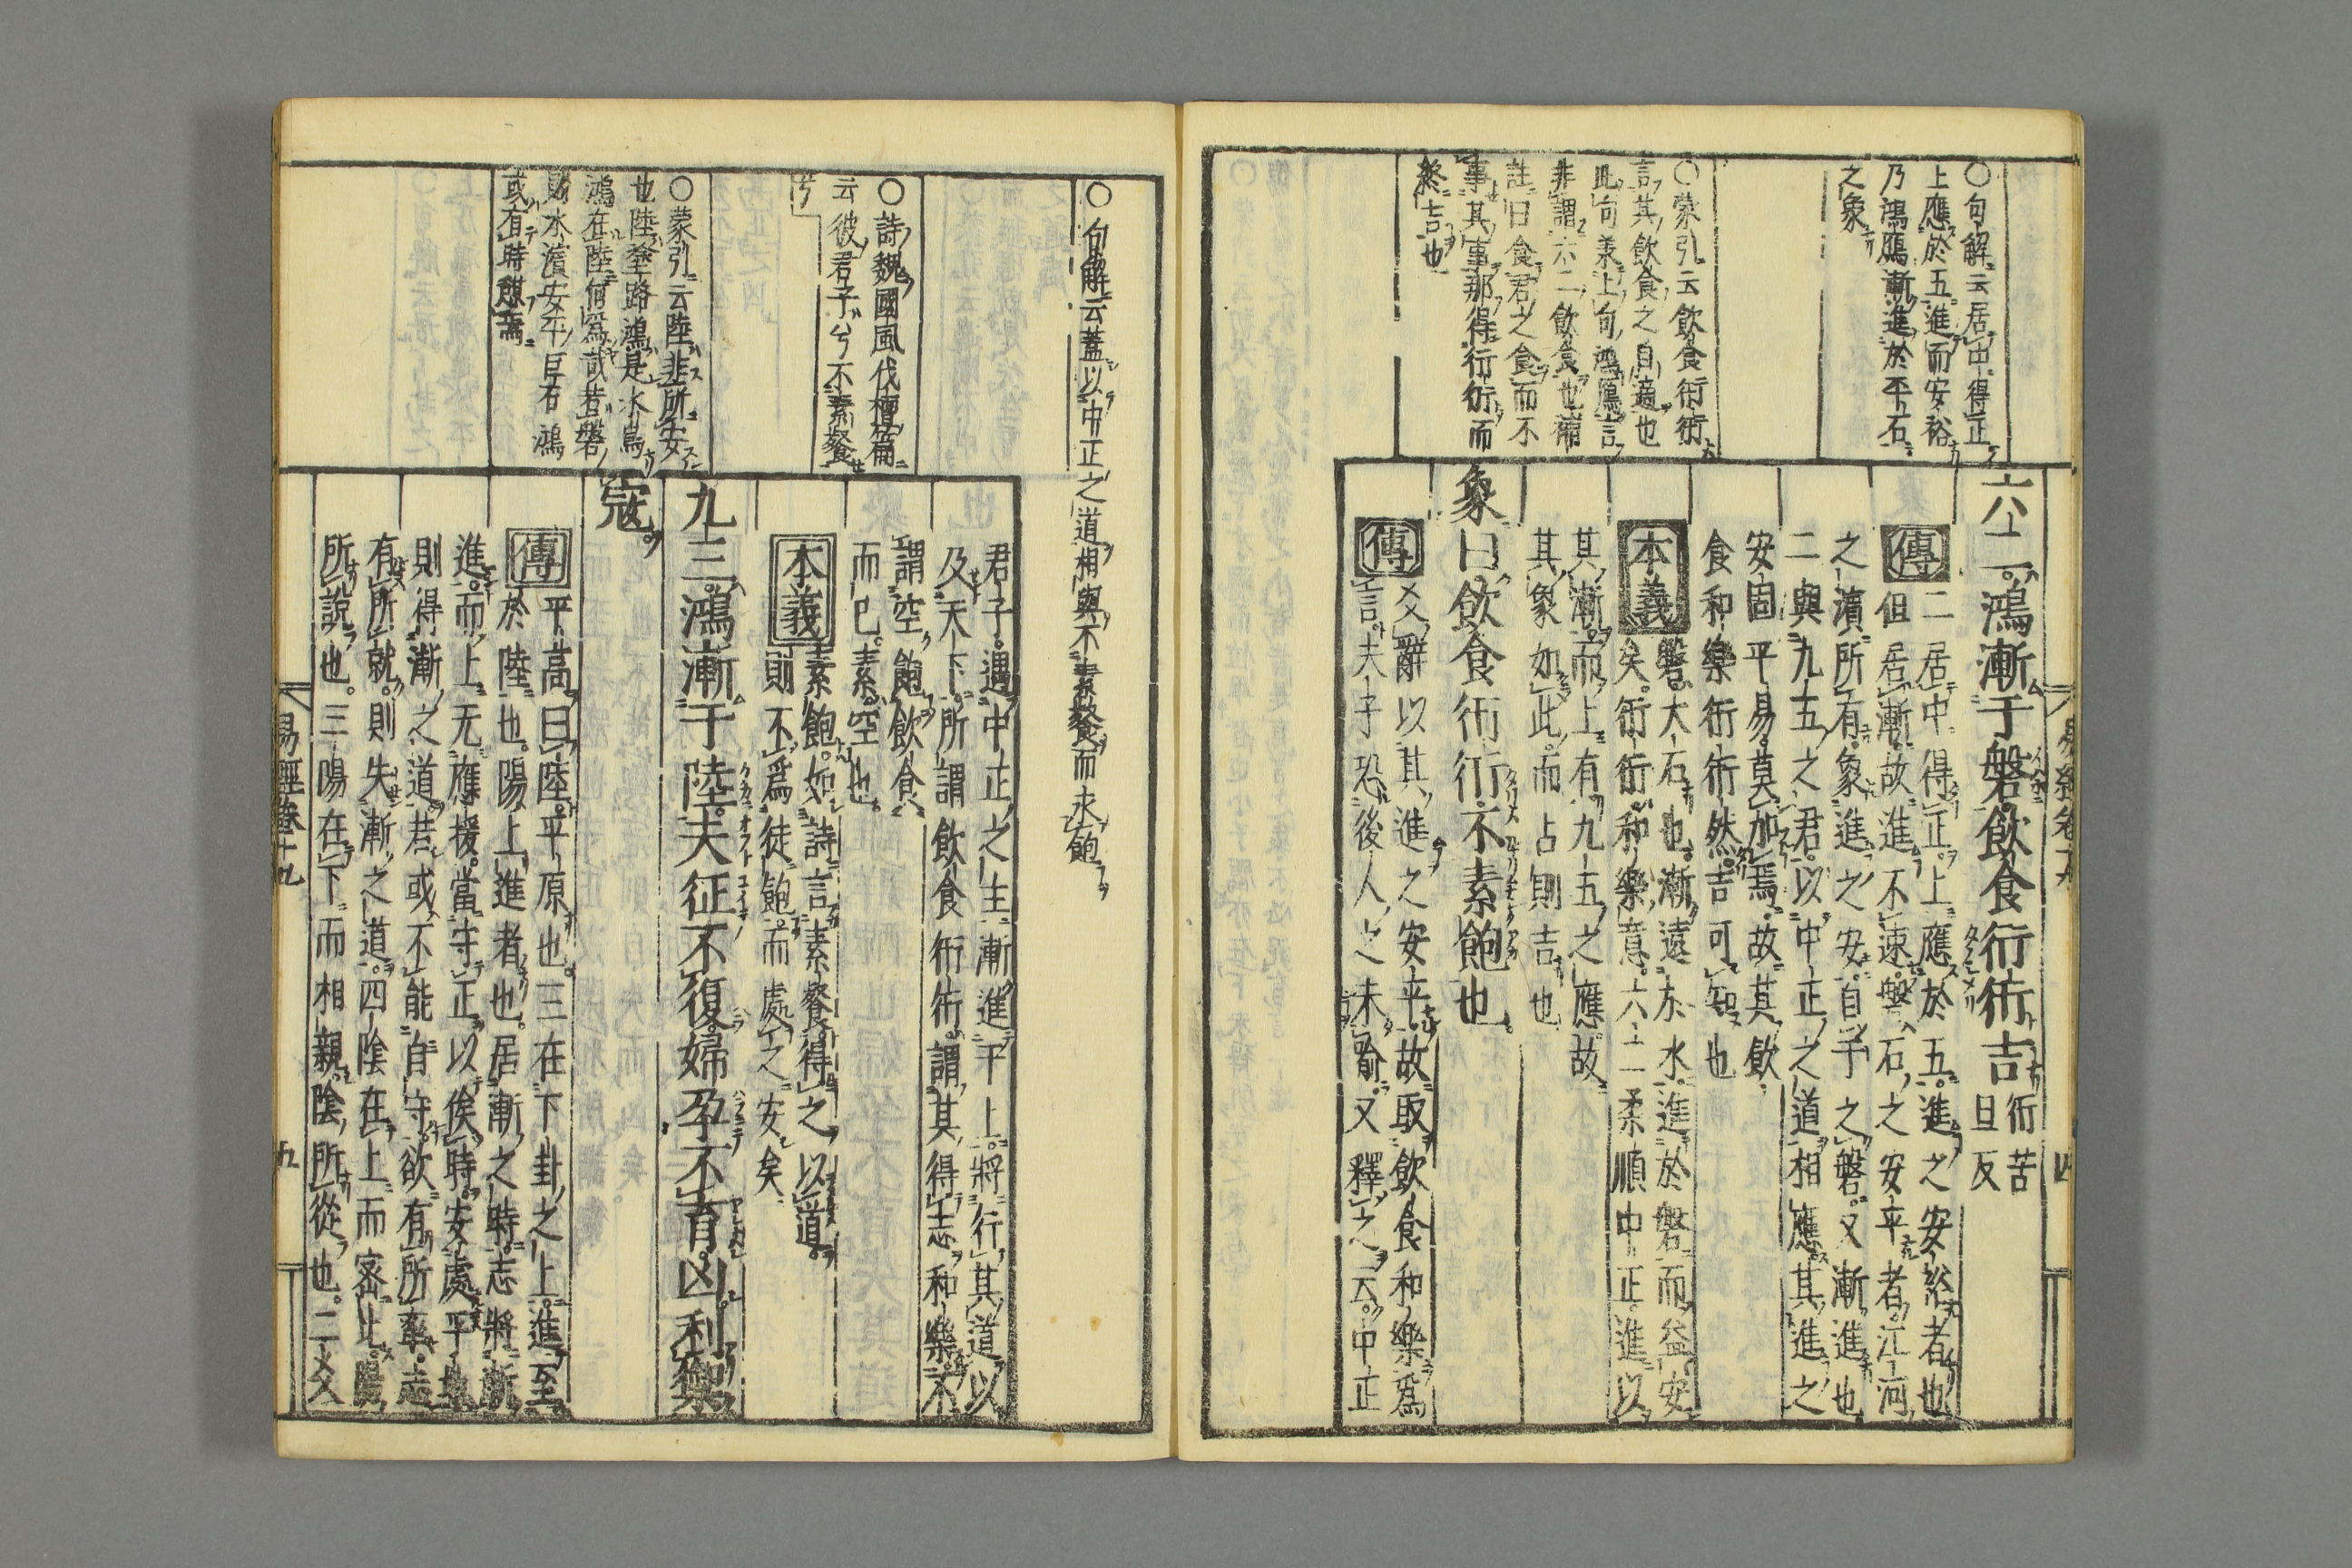 易經卷十九
四
○句解云居中得正
上應於五進而安裕
乃鴻鴈漸進於平石
之象
○蒙引云飲食衎衎
言其飲食之自適也
此句兼上句鴻鴈言
非謂六二飲食也補
註曰食君之食而不
事其事那得行衎而
終吉也
六二。鴻漸于磐。飲食衎衎。吉 衎苦
旦反
傳 二居中得正。上應於五。進之安裕者也
但居漸故進不速。磐石之安平者。江河
之濱所有。象進之安。自于之磐。又漸進也
二與九五之君。以中正之道相應。其進之
安固平易。莫加焉。故其飲
食和樂衎衎然。吉可知也
本義 磐。大石也。漸遠於水。進於磐而益安
矣。衎衎。和樂意。六二柔順中正。進以
其漸。而上有九五之應。故
其象如此。而占則吉也
象曰飲食衎衎。不素飽也。
傳 爻辭以其進之安平。故取飲食和樂爲
言。夫子恐後人之未喻。又釋之云。中正
○句解云蓋以中正之道相與不素餐而永飽
○詩魏國風伐檀篇
云彼君子兮不素餐
兮
○蒙引云陸非所安
也陸陸路鴻是水鳥
鴻在陸何爲哉若磐
則水濱安平巨石鴻
或有時憇焉
君子。遇中正之主。漸進于上。將行其道以
及天下。所謂飲食衎衎。謂其得志和樂。不
謂空飽飲食
而已。素。空也
本義 素飽。如詩言素餐。得之以道。
則不爲徒飽。而處之安矣
九三。鴻漸于陸。夫征不復。婦孕不育。凶。利禦
寇。
傳 平高曰陸。平原也。三在下卦之上。進至
於陸也。陽上進者也。居漸之時。志將漸
進。而上无應援。當守正以俟時。安處平地
則得漸之道。若或不能自守。欲有所牽。志
有所就。則失漸之道。四陰在上而密比。陽
所說也。三陽在下而相親。陰所從也。二爻
易經卷十九
九